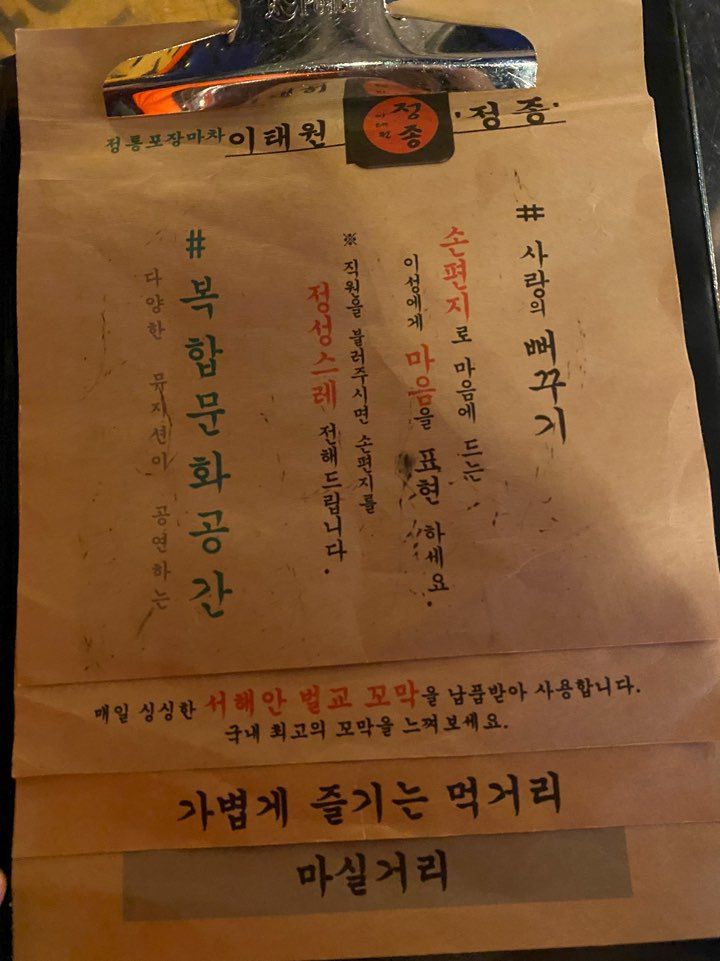 정통포장마차 이태원 정종 이태원 ·정종·
# 사랑의 뻐꾸기
손편지로 마음에 드는
이성에게 마음을 표현 하세요.
※ 직원을 불러주시면 손편지를
정성스레 전해드립니다.
# 복합문화공간
다양한 뮤지션이 공연하는
매일 싱싱한 서해안 벌교 꼬막을 납품받아 사용합니다.
국내 최고의 꼬막을 느껴보세요.
가볍게 즐기는 먹거리
마실거리